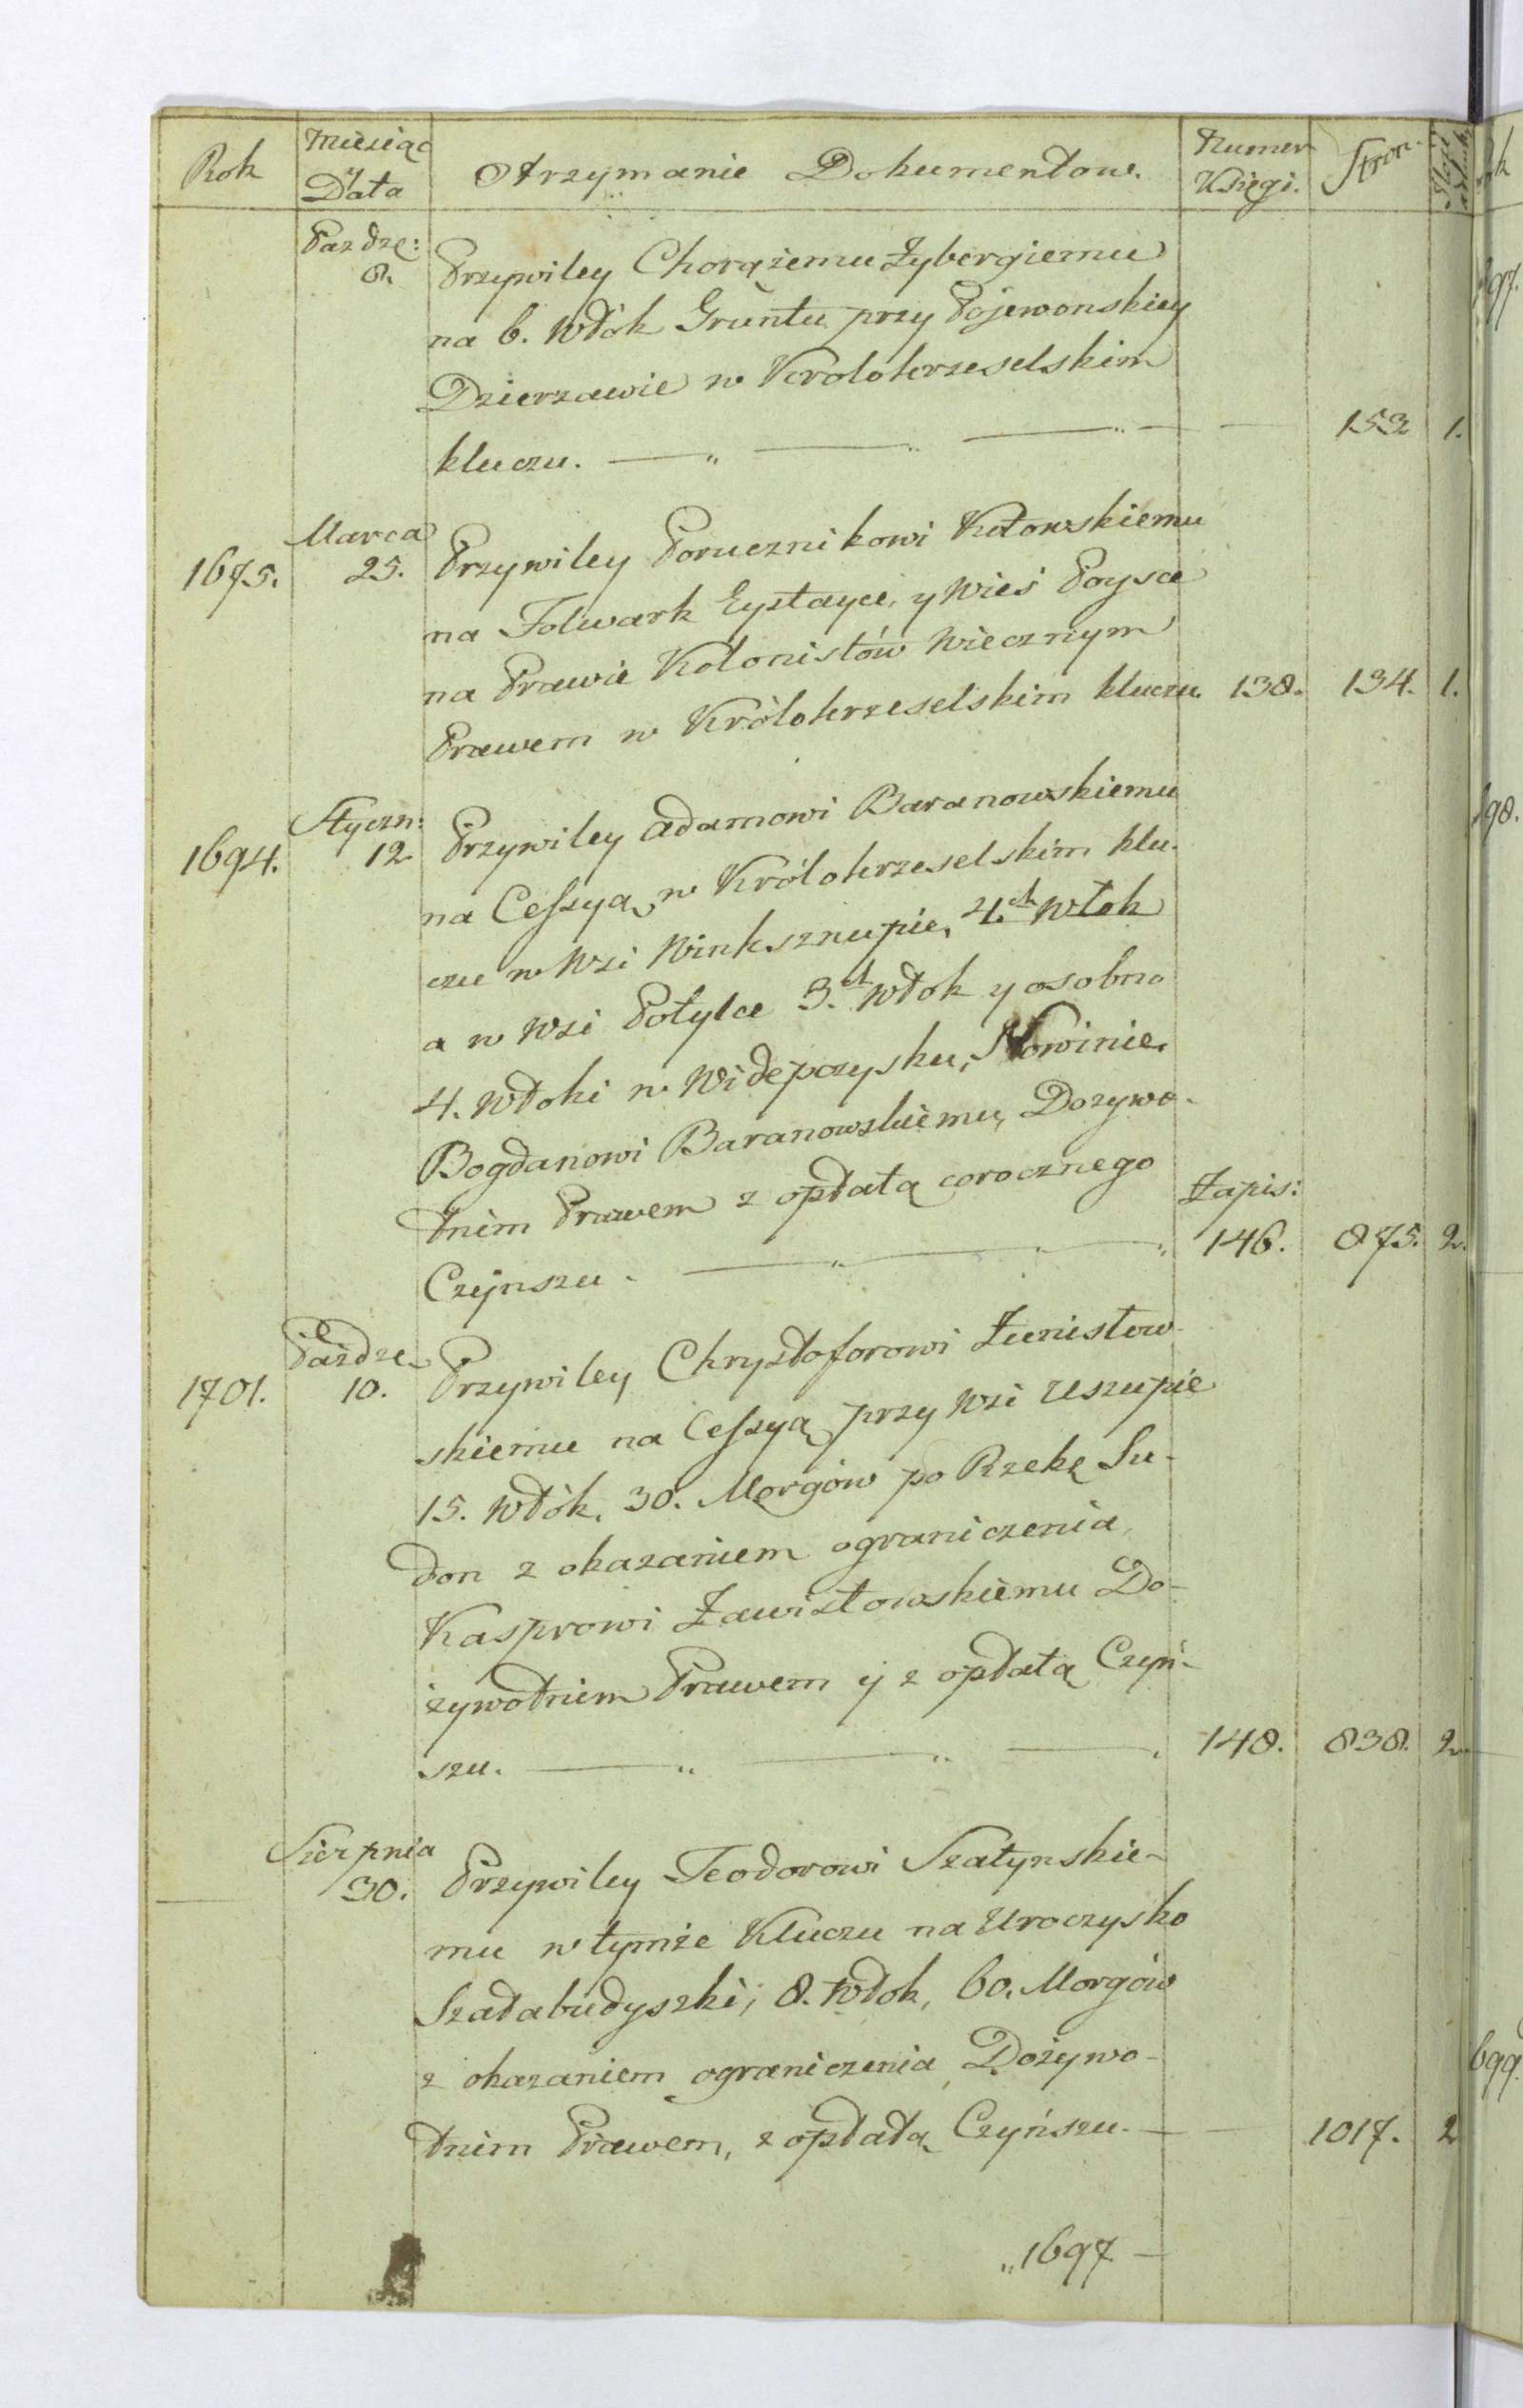 Rok
Miesiąc
y
Data
Otrzymanie Dokumentow.
Numer
Księgi.
Stron.
Pazdze:
8.
Przywiley Chorążemu Zybergiemu
na 6. Włók Gruntu przy Pojewonskiey
Dzierzawie w Krolokrzeselskim
kluczu. — „ — „ — „ — 153 1.
Marca
1675. 25. Przywiley Porucznikowi Kotowskiemu
na Folwark Eyztayce, y Wieś Poysce
na Prawie Kolonistów Wiecznym
Prawem w Królokrzeselskim kluczu. 138. 134. 1.
Styczn:
1694. 12 Przywiley Adamowi Baranowskiemu
na Cessyą w Królokrzeselskim klu-
czu w Wsi Winksznupie, 4. Włok
a w Wsi Potylce 3. Włok y osobno
4. Włoki w Widepczysku, Nowinie,
Bogdanowi Baranowskiemu, Dozywo-
tnim Prawem z opłatą corocznego
Zapis:
Czÿnszu. — „ — „ — „ 146. 875. 2.
Paźdze
1701. 10. Przywiley Chrysztoforowi Zunistow-
skiemu na Cessyą przy Wsi Uszupie
15. Włók, 30. Morgów po Rzekę Su-
don z okazaniem ograniczenia,
Kasprowi Zawistowskiemu Do-
żywotniem Prawem ÿ z opłatą Czyń-
szu. — „ — „ — . 148. 838. 2.
Sierpnia
30. Przywiley Teodorowi Szatynskie-
mu w tymże Kluczu na Uroczysko
Szatabudyszki, 8. Włok, 60. Morgów
z okazaniem ograniczenia, Dożywo-
tnim Prawem, z opłatą Czyńszu. — 1017. 2
„1697 —